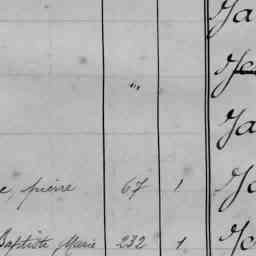 Ja
"
Ja
e, pierre 67 1
Baptiste Marie 232 1